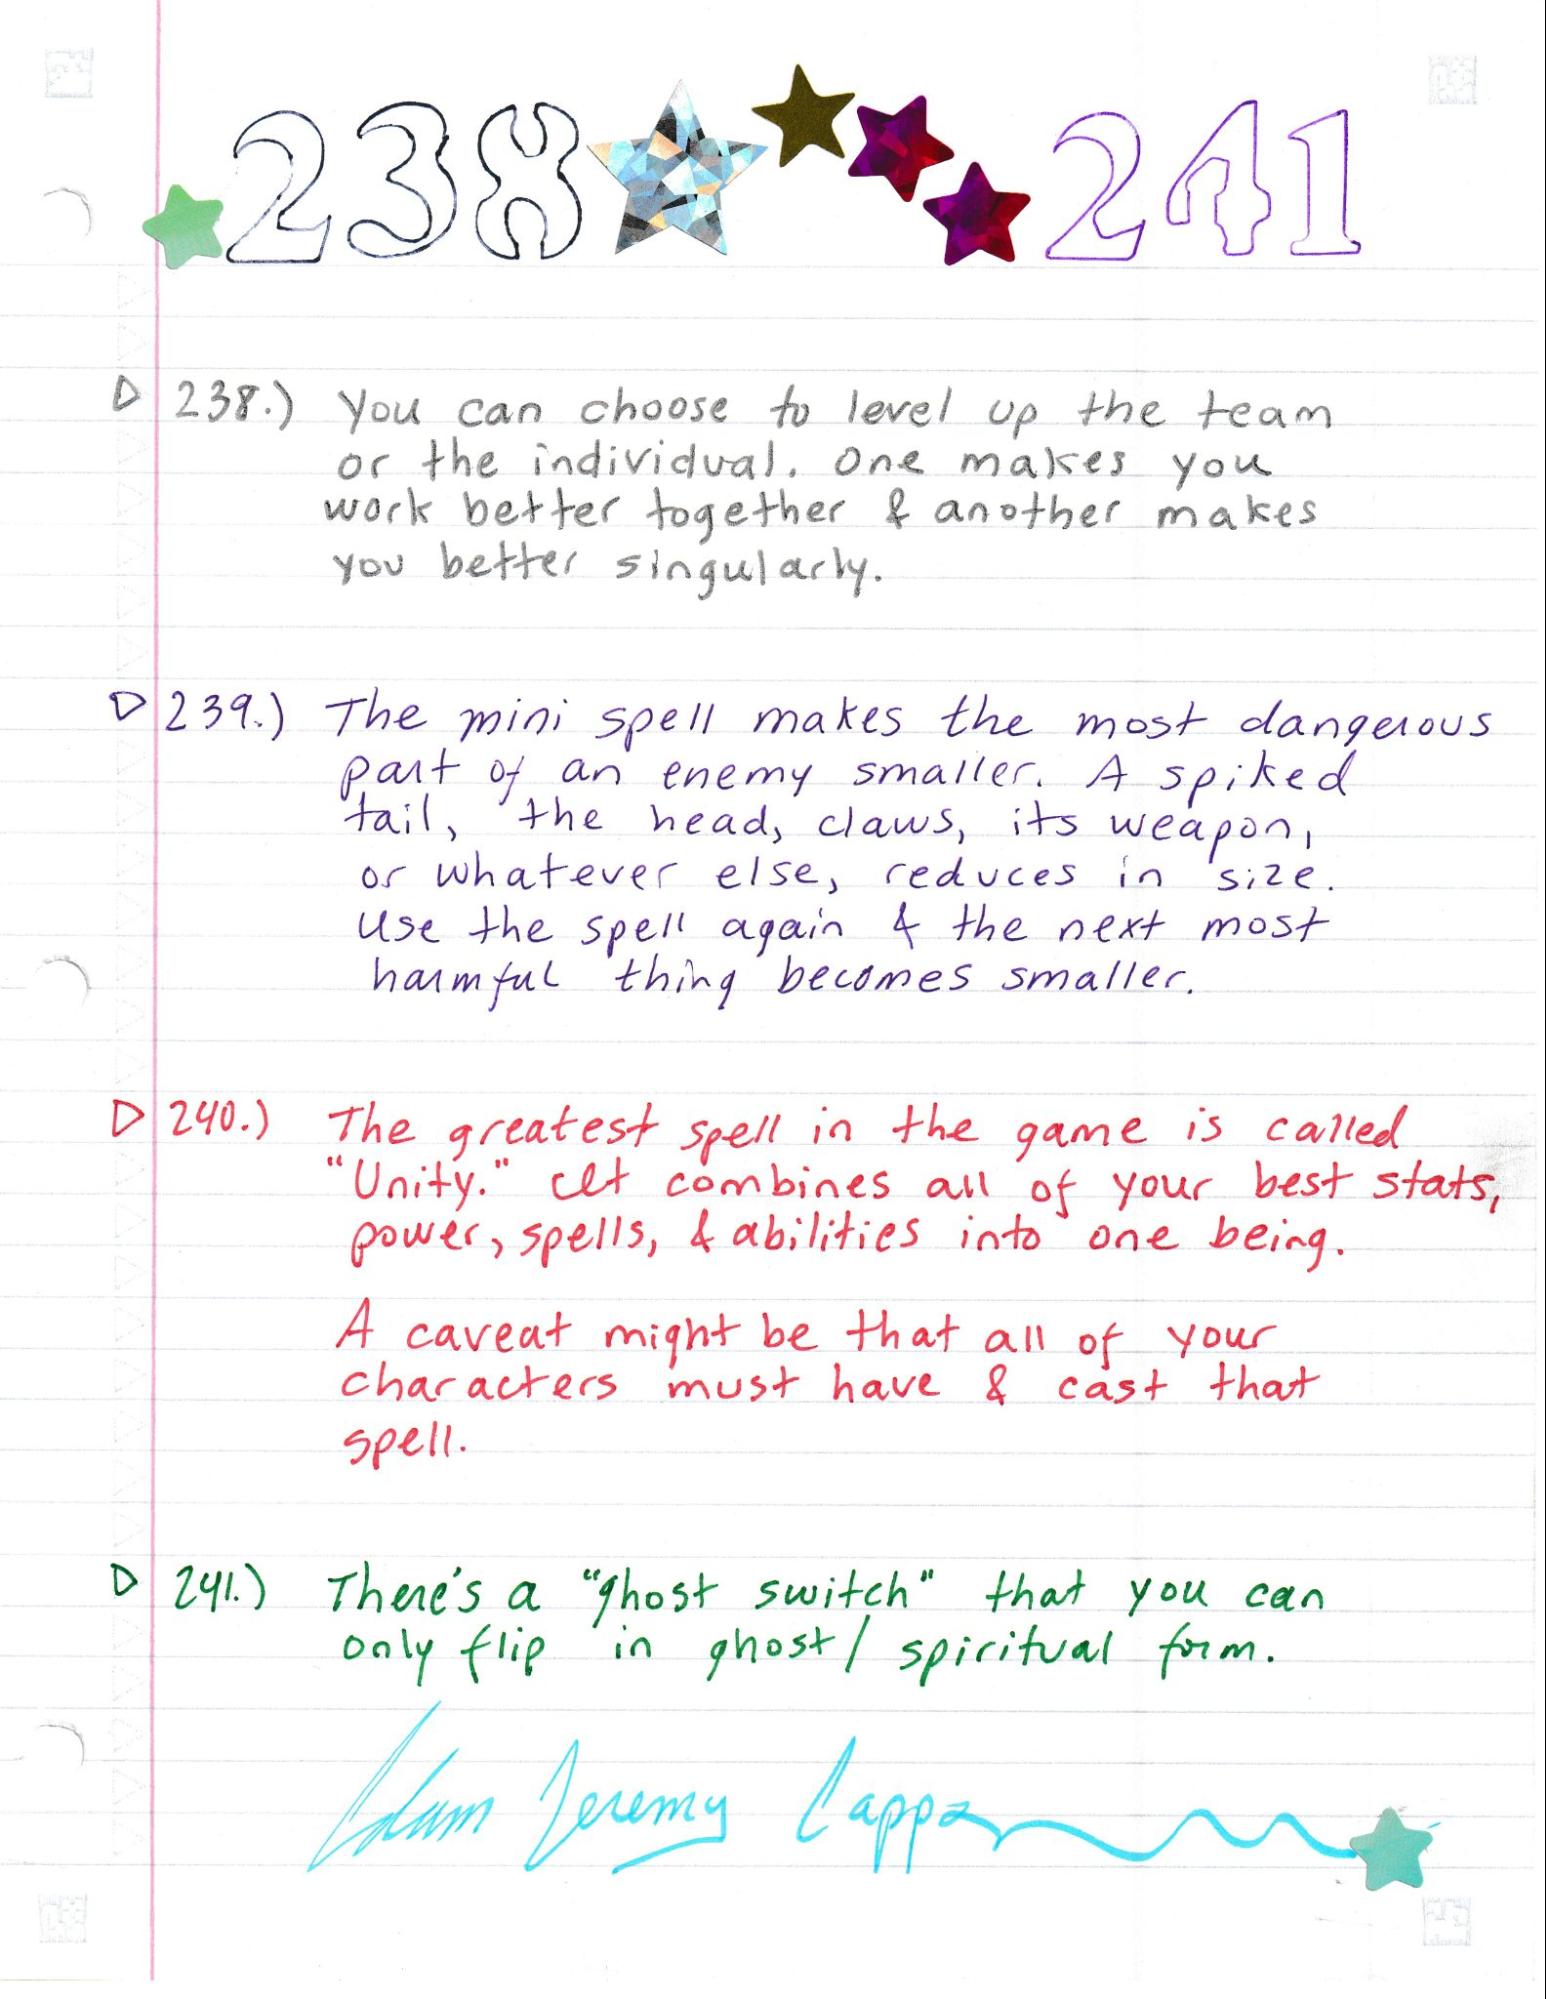 238 241
▷ 238.) You can choose to level up the team
or the individual. One makes you
work better together & another makes
you better singularly.
▷ 239.) The mini spell makes the most dangerous
part of an enemy smaller. A spiked
tail, the head, claws, its weapon,
or whatever else, reduces in size.
Use the spell again & the next most
harmful thing becomes smaller.
▷ 240.) The greatest spell in the game is called
"Unity." It combines all of your best stats,
power, spells, & abilities into one being.
A caveat might be that all of your
characters must have & cast that
spell.
▷ 241.) There's a "ghost switch" that you can
only flip in ghost/spiritual form.
Adam Jeremy Capps